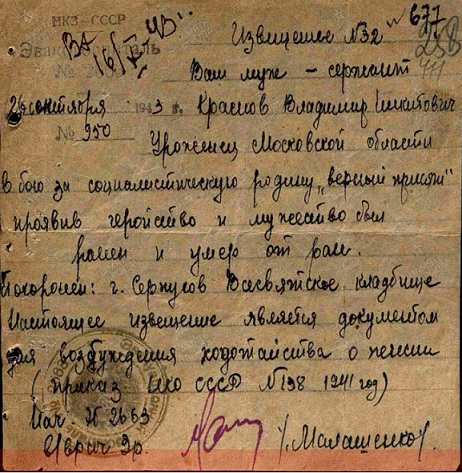 НКЗ-СССР
Эвак
Извещение №32
677
Ваш муж – сержант
26 сентября 1943 г. Краснов Владимир Никитович
№ 950
Уроженец Московской области
в бою за социалистическую родину, "верный присяге"
проявив геройство и мужество был
ранен и умер от ран.
Похоронен: г. Серпухов Всесвятское кладбище
Настоящее извещение является документом
для возбуждения ходотайства о пенсии
(приказ НКО СССР №198 1941 год)
Нач. ЭГ 2663
/. Малашенко/.